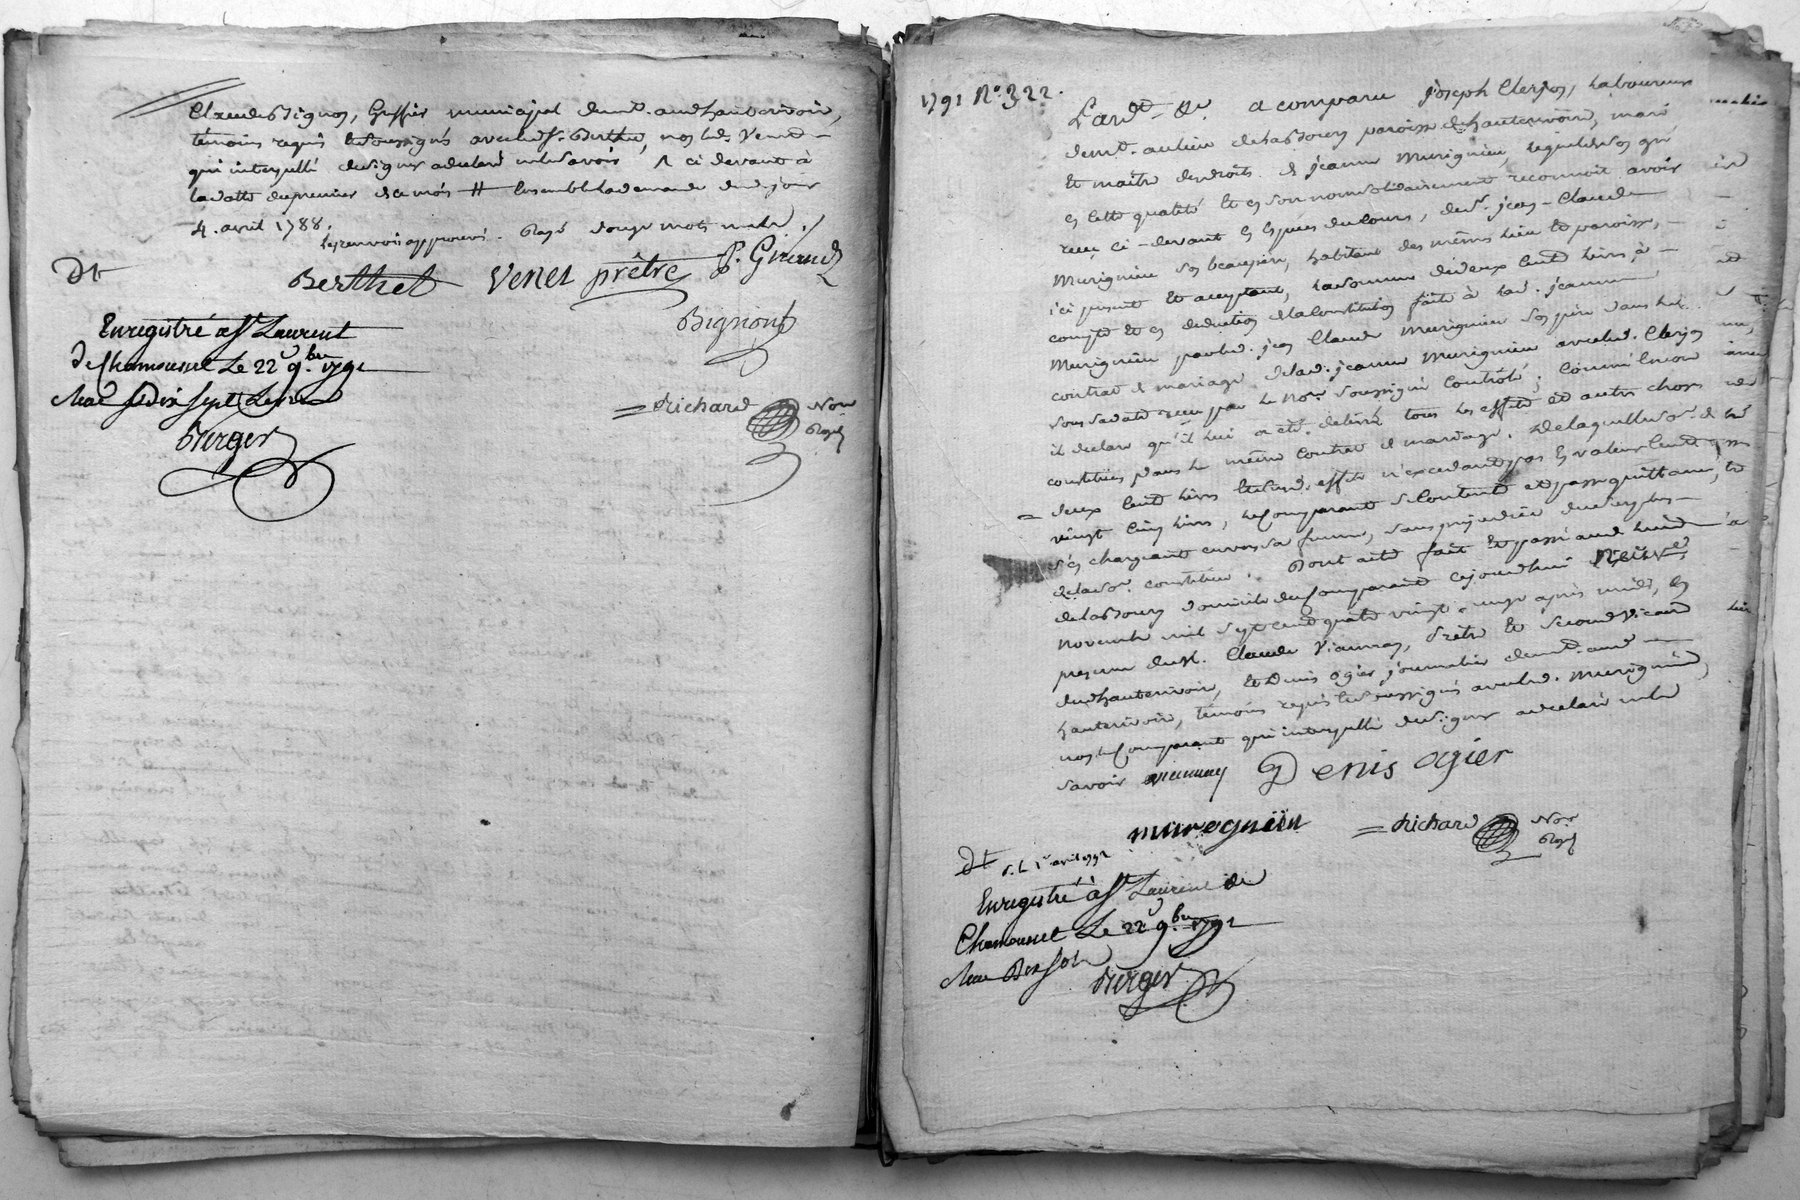 Claude Bignon, Greffier municipal demt. aud hauterivoir,
témoins requis et soussignés avec led. Sr. Berthet, non led. Venet
qui interpellé de signer a déclaré ne le savoir /\ ci devant à
la datte du premier de ce mois # Ensemble la demande dud. jour
4. avril 1788.
les renvois approuvés. Rayé douze mots nuls /.
Dt
Berthet Venet prêtre P. Giraud
Bignon
Enregistré a St. Laurent
de Chamousset Le 22 9.bre 1791
Reçu dix sept Livres
Berger
= Richard Nore
Royal
1791 N.o 322.
L'and. De. a comparu joseph Clerjon, Laboureur
demt. au lieu de la Boury paroisse de hauterivoire, mari
Et maitre des droits de jeanne Murignieu, lequel de son gré
En cette qualité Et en son nom solidairement reconnoit avoir
reçu ci-devant En Espèces du Cours, de Sr. jean-Claude
Murignieu son beaupère, habitant des mêmes lieu et paroisse,
ici présent Et acceptant, la somme de deux Cent livres à
compte Et en déduction de la Constitution faite à lad. jeanne
Murignieu par led. jean Claude Murignieu son père dans le
contrat de mariage de lad. jeanne Murignieu avec led. Clerjon
sous sa date reçu par le Nore. soussigné Contrôlé; Comme Encore
il déclare qu'il lui a été délivré tous les effets et autres choses
constitués dans le même Contrat de mariage. De laquelle so.e de
deux Cent livres et desd. effets n'excédant pas En valeur Cent
vingt Cinq livres, le Comparant se Contente et passe quittance,
s'en chargeant envers sa femme, sans préjudice du surplus
de lad. constitution. Dont acte fait Et passé aud. lieu
de la Boury domicile du Comparant cejourd'hui Neuf
Novembre mil sept cent quatre vingt onze après midi, En
présence de M. Claude Viannay, Prêtre Et second Vicaire
dud hauterivoir, Et Denis Ogier journalier demt. aud
hauterivoir, témoins requis et soussignés avec led. Murignieu,
non le Comparant qui interpellé de signer a déclaré ne le
savoir Viannay Denis Ogier
muregnieu = Richard Nor.
Royal
Dt d. L. 1r avril 1792
Enregistré à St. Laurent de
Chamousset Le 22 9.bre 1791
Reçu Dix Sols
Berger